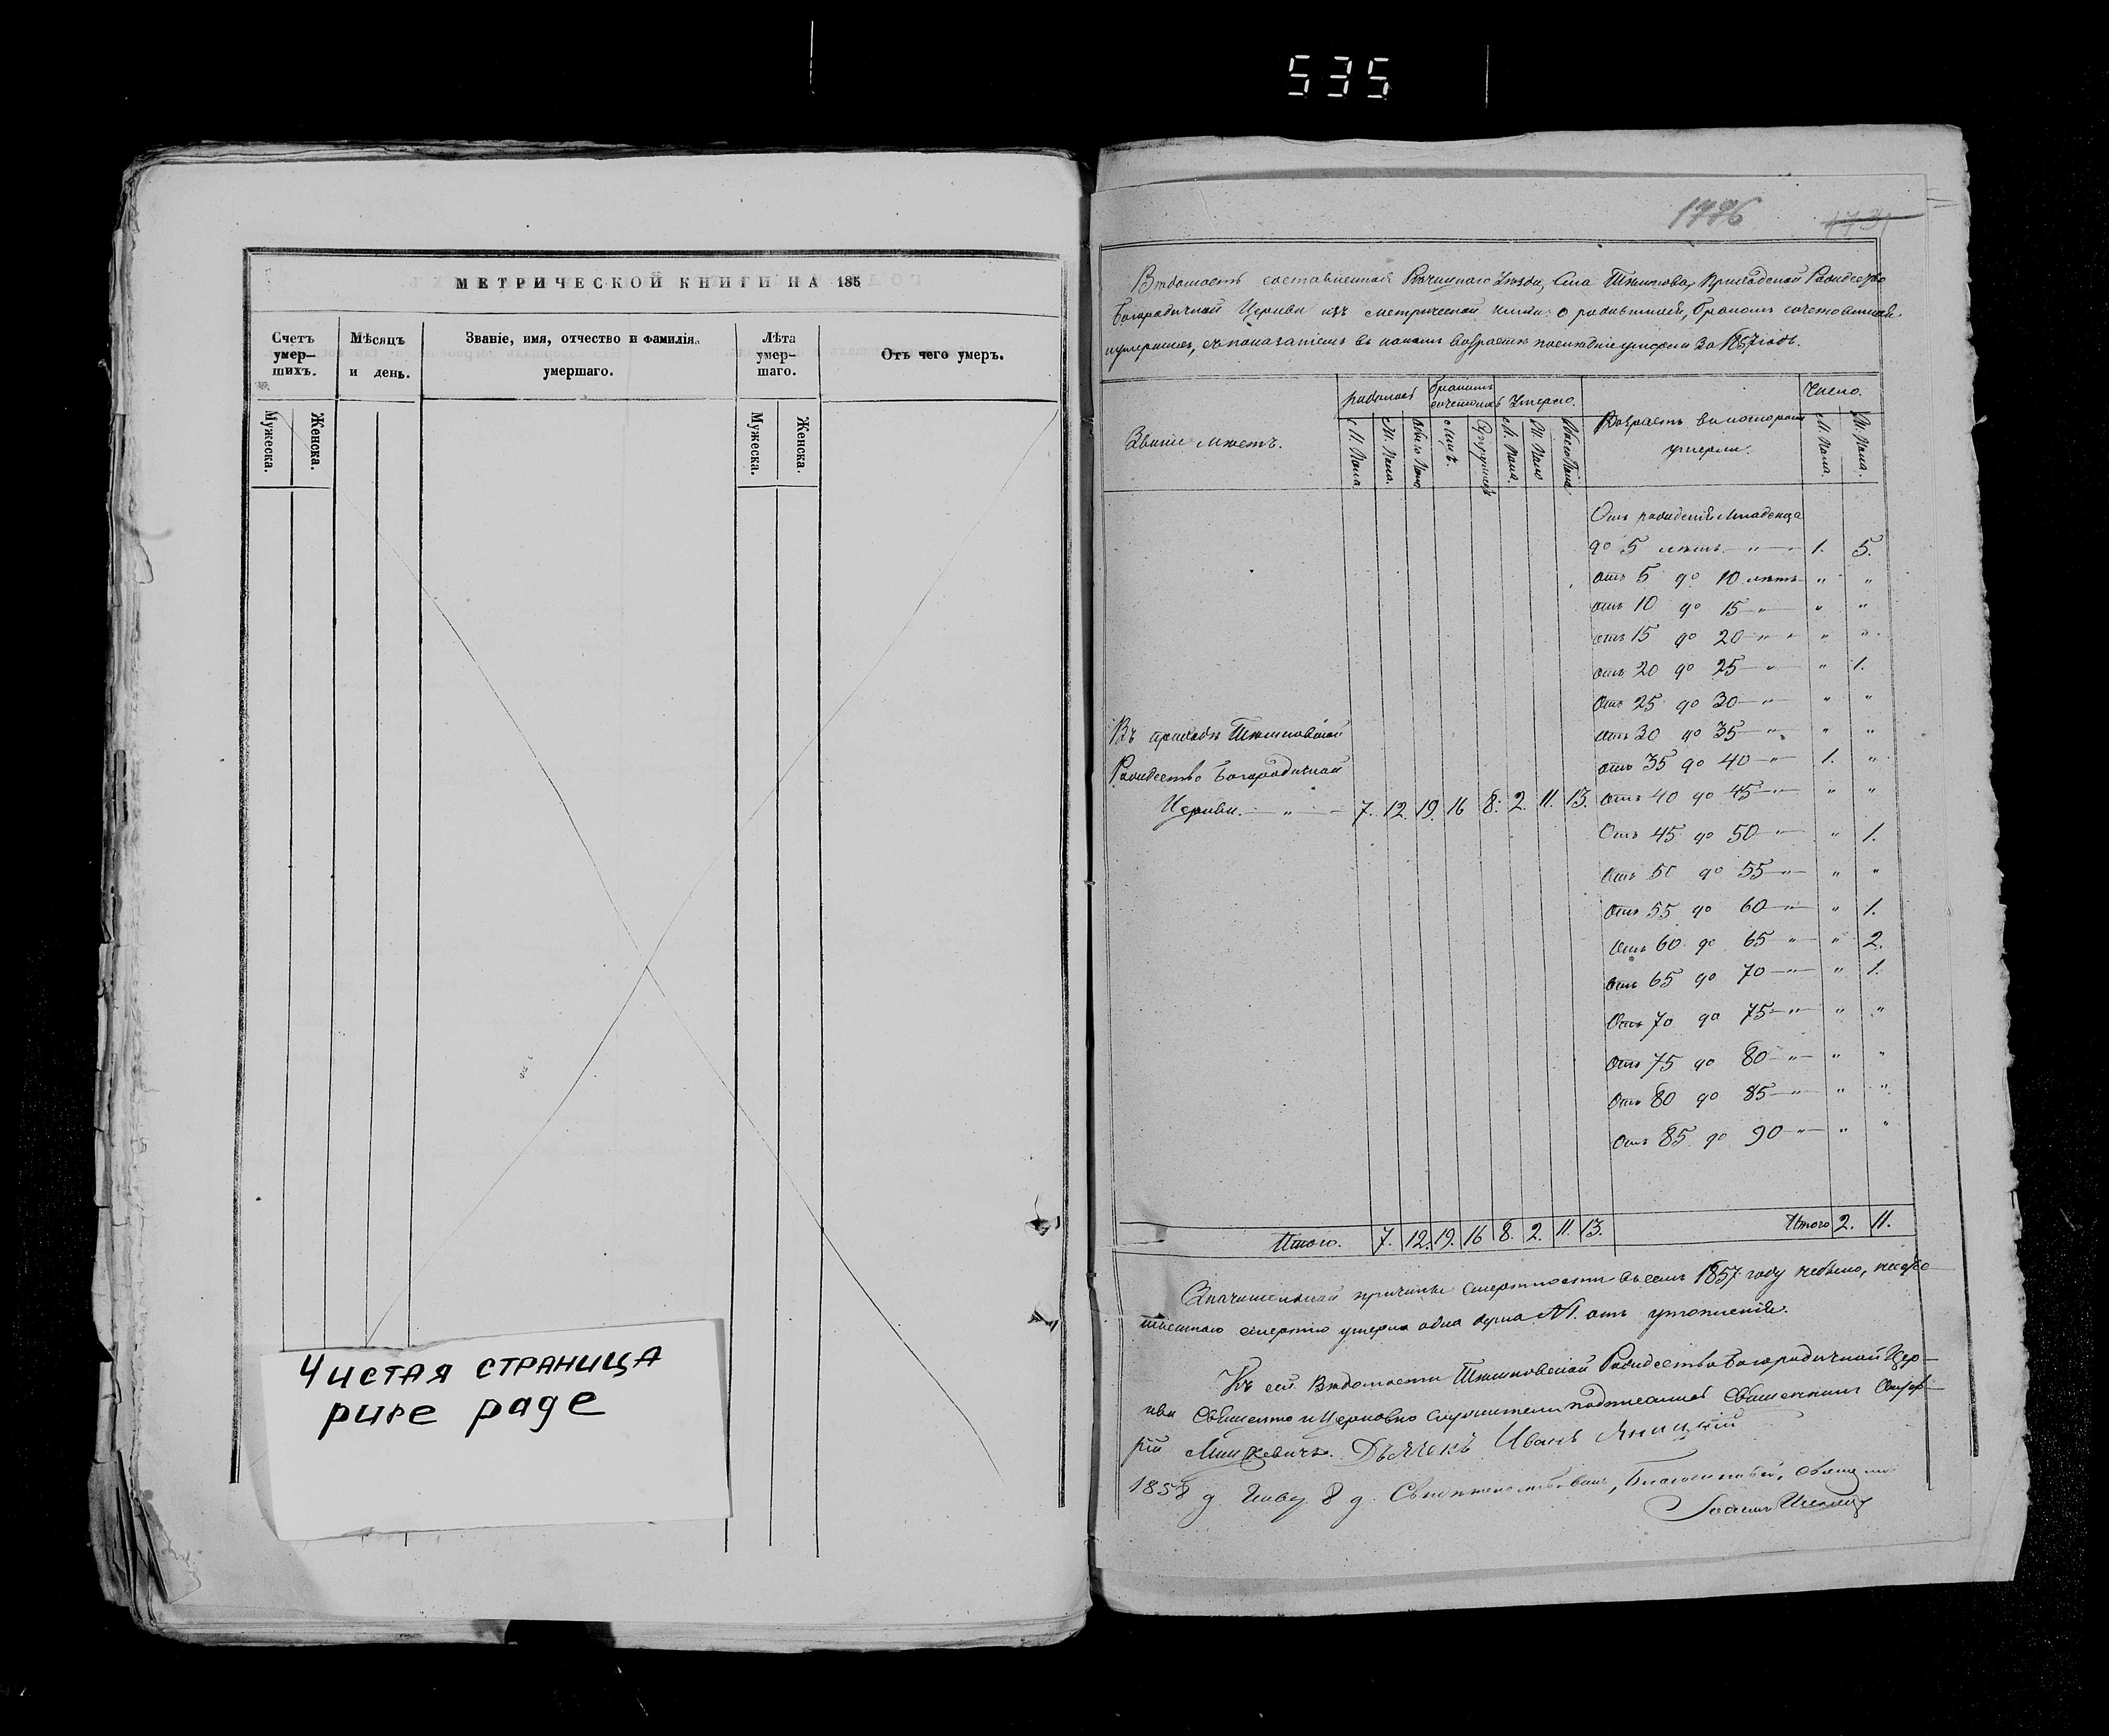 535
МЕТРИЧЕСКОЙ КНИГИ НА 185
Счетъ умер-
шихъ.
Мѣсяцъ
и день.
Званіе, имя, отчество и фамилія
умершаго.
Лѣта
умер-
шаго.
Отъ чего умеръ.
Мужеска.
Женска.
Мужеска.
Женска.
Чистая страница
pure page
1776
1731
Вѣдомость составленная Уѣзда, Села Приходской Рождество
Богородичной Церкви изъ метрической книги о родившихся, бракомъ сочетавшихся
и умершихъ, съ показаніемъ въ какомъ возрастѣ послѣдніе умерли за 1857 годъ.
Званіе мѣстъ.
родилось
бракомъ
сочеталось
Умерло.
Возрастъ въ которомъ
умерли.
Число.
М. Пола
Ж. Пола.
Обоего Пола
Лицъ.
Супружествъ
М. Пола.
Ж. Пола
Обоего Пола
М. Пола.
Ж. Пола.
Отъ рожденія Младенца
до 5 лѣтъ — „ — 1. 5.
отъ 5 до 10 лѣтъ „ „
отъ 10 до 15 — „ — „ „
отъ 15 до 20 — „ — „ „
отъ 20 до 25 — „ — „ 1.
Отъ 25 до 30 — „ — „ „
Въ приходѣ
отъ 30 до 35 — „ — „ „
Рождество Богородичной
отъ 35 до 40 — „ — 1. „
Церкви. — „ — 7. 12. 19. 16 8. 2. 11. 13. Отъ 40 до 45 — „ — „ „
Отъ 45 до 50 — „ — „ 1.
Отъ 50 до 55 — „ — „ „
Отъ 55 до 60 — „ — „ 1.
Отъ 60 до 65 — „ — „ 2.
Отъ 65 до 70 — „ — „ 1.
Отъ 70 до 75 — „ — „ „
Отъ 75 до 80 — „ — „ „
Отъ 80 до 85 — „ — „ „
Отъ 85 до 90 — „ — „ „
Итого. 7. 12. 19. 16 8. 2. 11. 13. Итого 2. 11.
Значительной причины смертности въ семъ 1857 году небыло,
смертію умерла одна душа отъ утопленія.
Къ сей Вѣдомости Рождество Богородичной Цер-
кви Священно и Церковно служители подписались Священникъ
Дьячекъ Иванъ Яницкій
1858 г. Янвр 8 д. Свидѣтельствовалъ, Благочинный, Священникъ
Іоаннъ